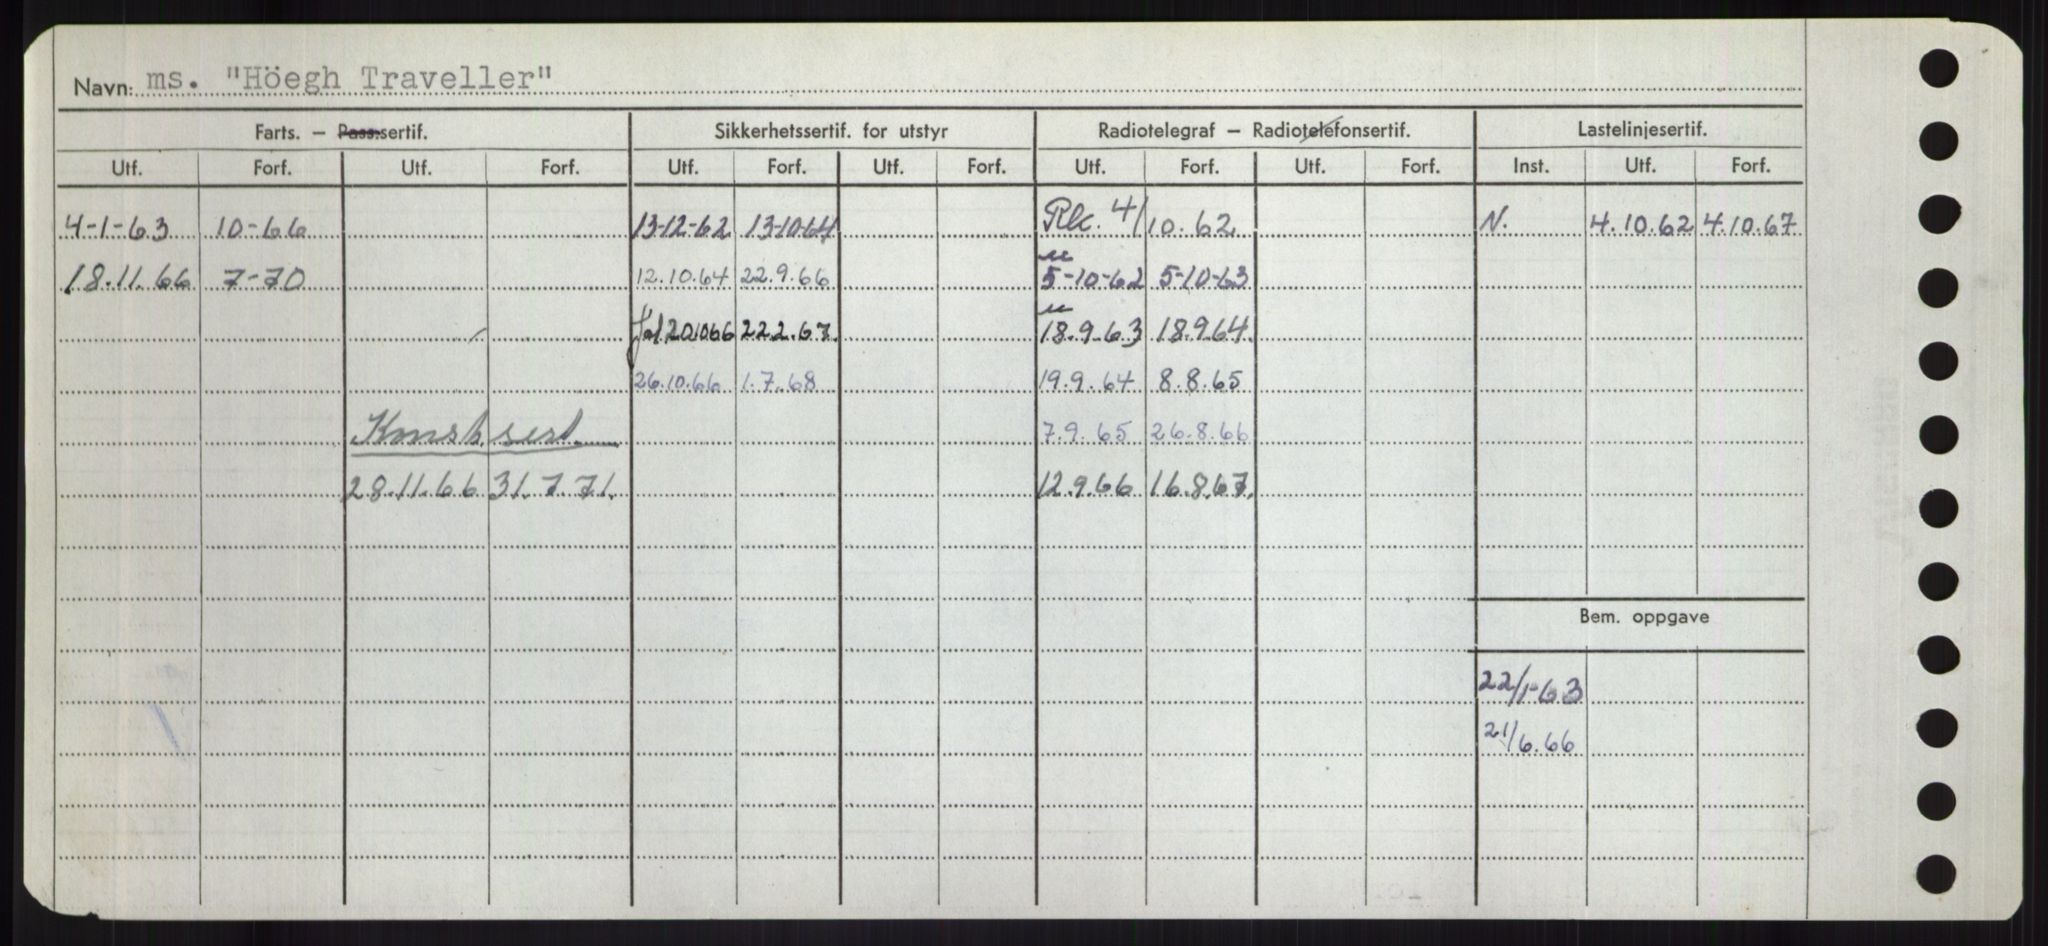 Navn: ms. "Höegh Traveller"
Farts. – Pass.sertif. Sikkerhetssertif. for utstyr Radiotelegraf – Radiotelefonsertif. Lastelinjesertif.
Utf. Forf. Utf. Forf. Utf. Forf. Utf. Forf. Utf. Forf. Utf. Forf. Inst. Utf. Forf.
4-1-63 10-66 13-12-62 13-10-64 4/10.62 N. 4.10.62 4.10.67
18.11.66 7-70 12.10.64 22.9.66 5-10-62 5-10-63
201066 22.2.67. 18.9.63 18.9.64.
26.10.66 1.7.68 19.9.64 8.8.65
7.9.65 26.8.66
28.11.66 31.7.71. 12.9.66 16.8.67.
Bem. oppgave
22/1-63
21/6.66